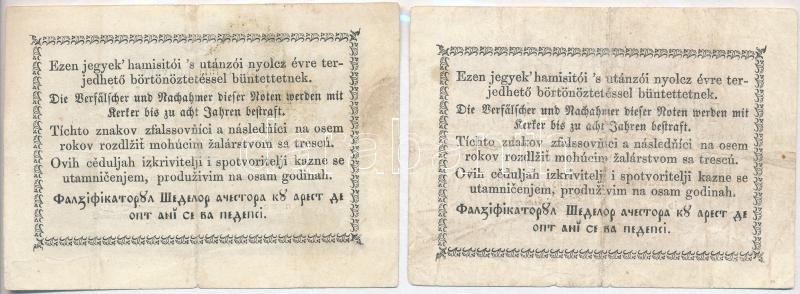 Ezen jegyek' hamisitói 's utánzói nyolcz évre ter-
jedhető börtönöztetéssel büntettetnek.
Die Verfälscher und Nachahmer dieser Noten werden mit
Kerker bis zu acht Jahren bestraft.
Tíchto znakov zfalssovňíci a následňíci na osem
rokov rozdlžiť mohúcim žalárstvom sa trescú.
Ovih cédulјah izkrivitelji i spotvoritelji kazne se
utamničenjem, produživim na osam godinah.
Фалꙃіфікаторꙋл Шеделор ачестора кꙋ арест де
опт анї се ва педепсі.
Ezen jegyek' hamisitói 's utánzói nyolcz évre ter-
jedhető börtönöztetéssel büntettetnek.
Die Verfälscher und Nachahmer dieser Noten werden mit
Kerker bis zu acht Jahren bestraft.
Tíchto znakov zfalssovňíci a následňíci na osem
rokov rozdlžiť mohúcim žalárstvom sa trescú.
Ovih céduljah izkrivitelji i spotvoritelji kazne se
utamničenjem, produživim na osam godinah.
Фалꙃіфікаторꙋл Шеделор ачестора кꙋ арест де
опт анї се ва педепсі.